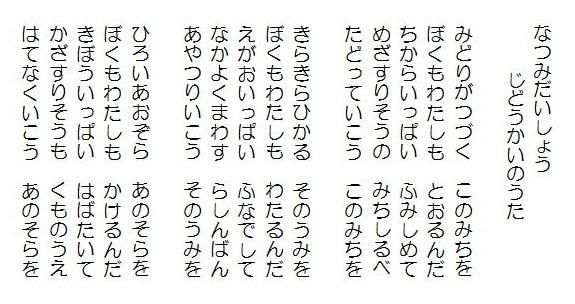 なつみだいしょう
じどうかいのうた
みどりがつづく　このみちを
ぼくもわたしも　とおるんだ
ちからいっぱい　ふみしめて
めざすりそうの　みちしるべ
たどっていこう　このみちを
きらきらひかる　そのうみを
ぼくもわたしも　わたるんだ
えがおいっぱい　ふなでして
なかよくまわす　らしんばん
あやつりいこう　そのうみを
ひろいあおぞら　あのそらを
ぼくもわたしも　かけるんだ
きぼういっぱい　はばたいて
かざすりそうも　くものうえ
はてなくいこう　あのそらを